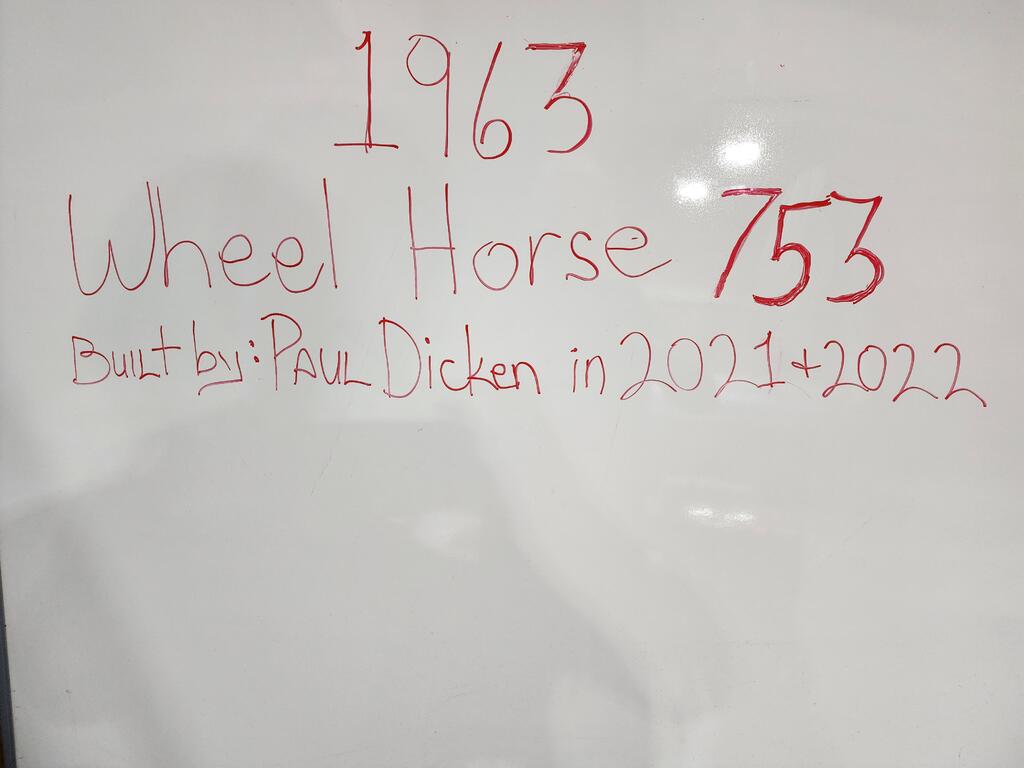 1963
Wheel Horse 753
Built by: PAUL Dicken in 2021 + 2022